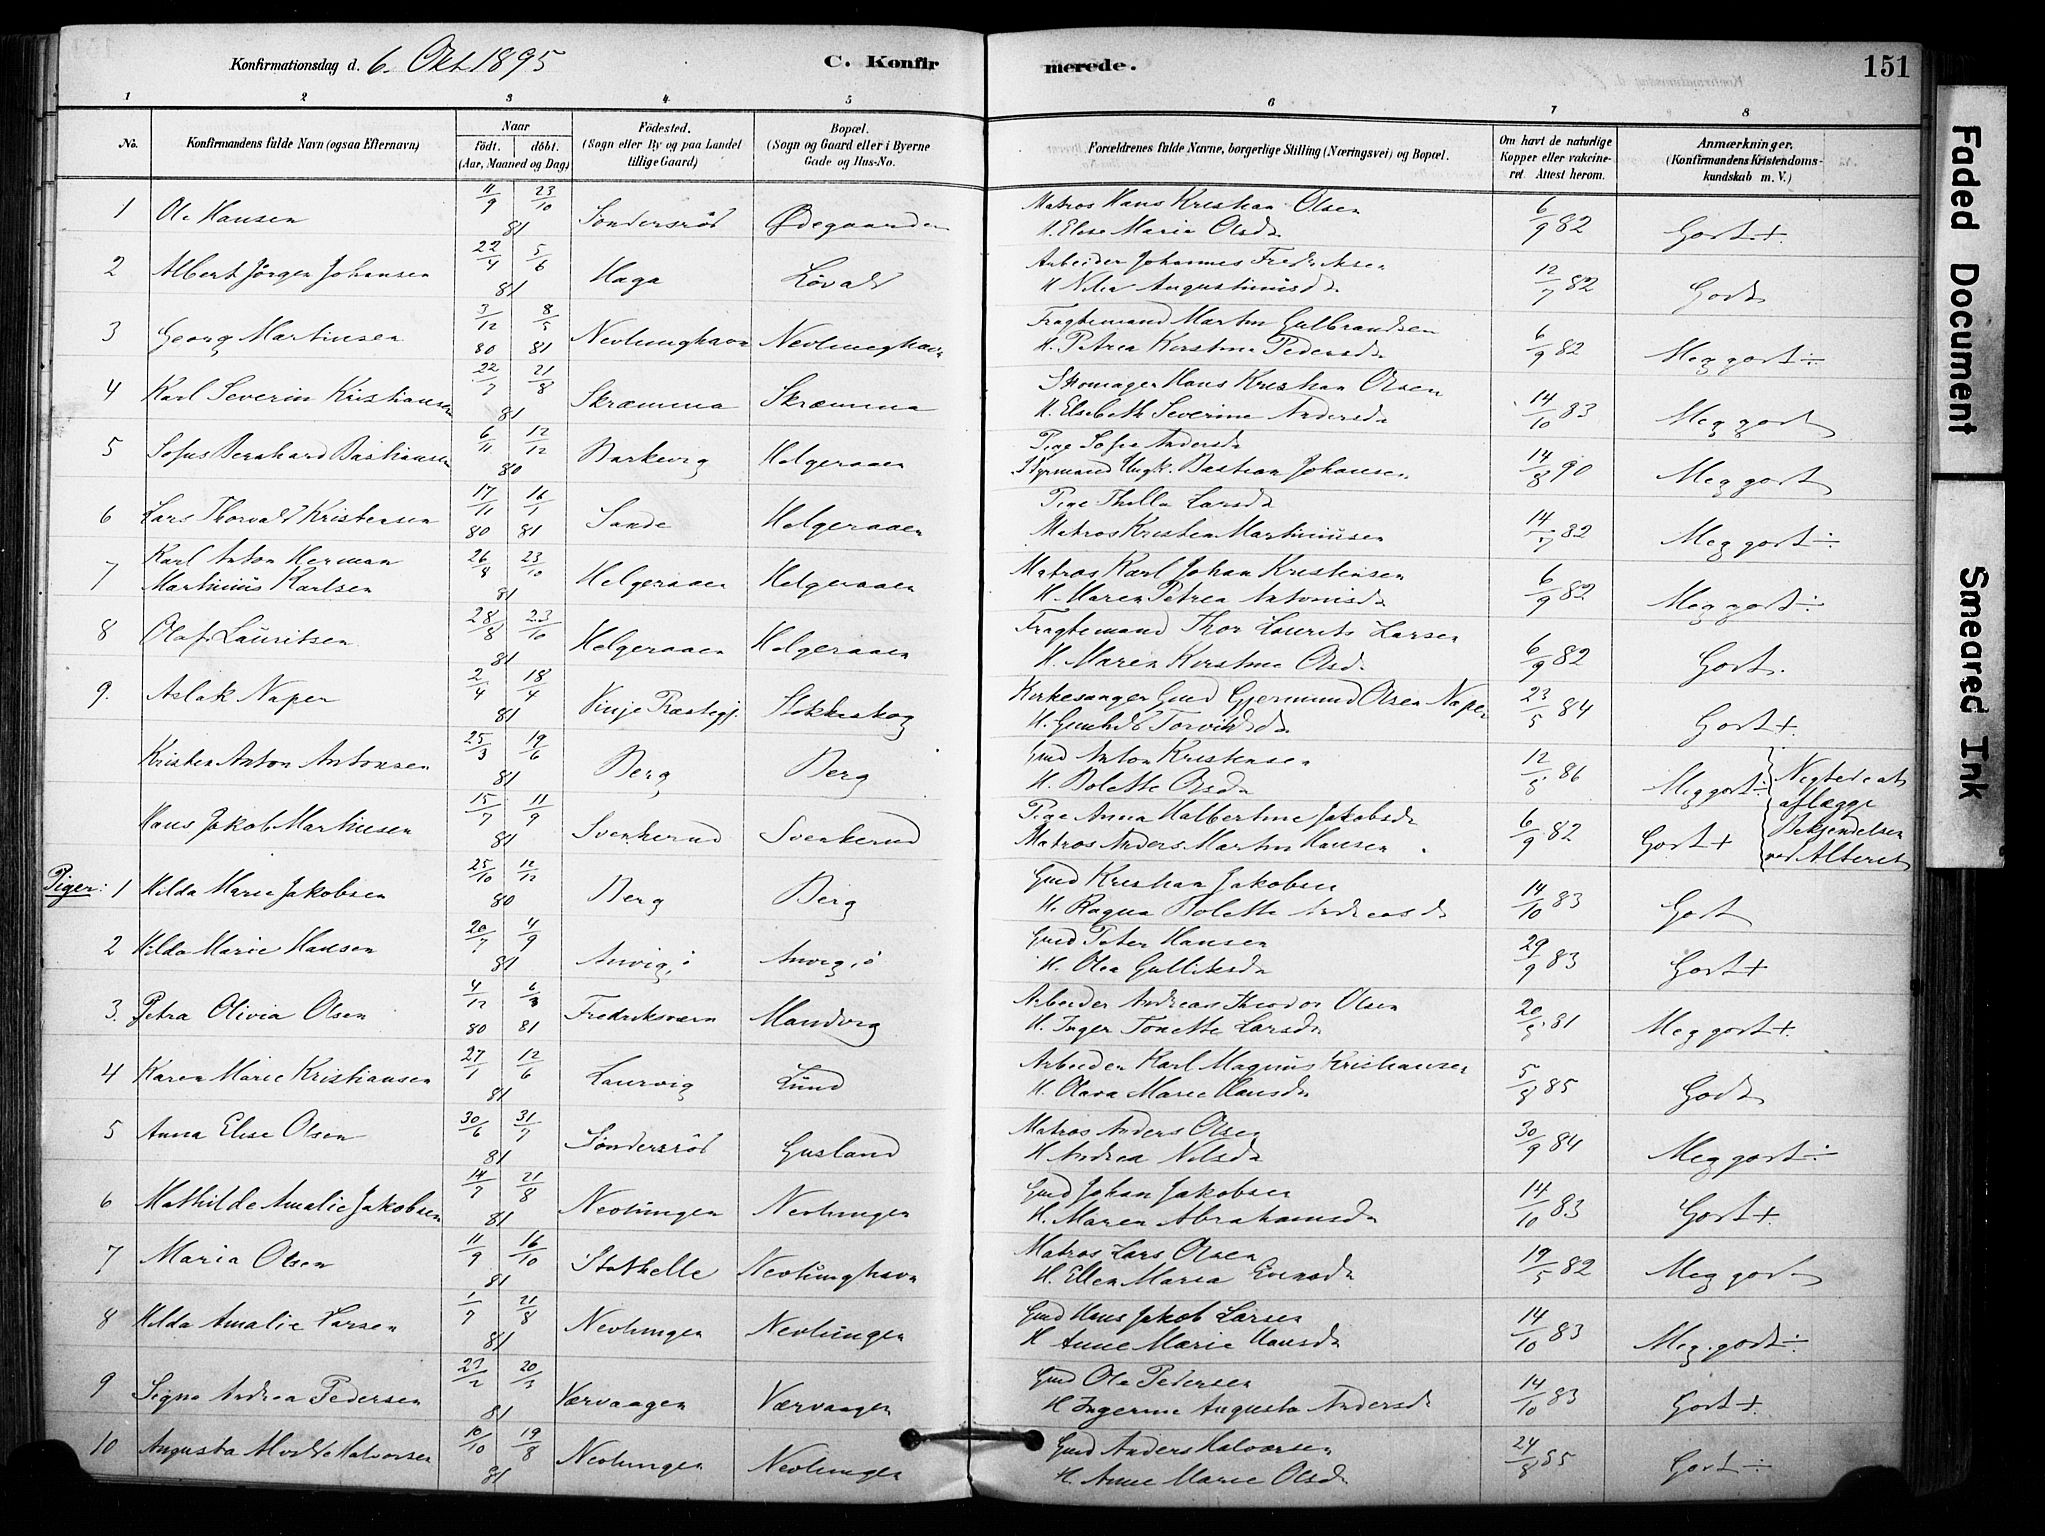 Konfirmationsdag d. 6. Okt. 1895
C. Konfirmerede.
151
1 2 3 4 5 6 7 8
No.
Konfirmandens fulde Navn (ogsaa Efternavn)
Naar
Födt. döbt.
(Aar, Maaned og Dag)
Födested.
(Sogn eller By og paa Landet tillige Gaard)
Bopæl.
(Sogn og Gaard eller i Byerne Gade og Hus-No.
Forældrenes fulde Navne, borgerlige Stilling (Næringsvei) og Bopæl.
Om havt de naturlige Kopper eller vaccineret. Attest herom.
Anmærkninger.
(Konfirmandens Kristendomskundskab m. V.)
1 Ole Hansen 11/9 23/10 81 Söndersröd Ødegaarden Matros Hans Kristian Olsen 6/9 82 Godt +
H. Elise Marie Olsd.
2 Albert Jörgen Johansen 22/4 5/6 81 Haga Løvald Arbeider Johannes Fredriksen 12/7 82 Godt
H. Augustinusd.
3 Georg Martinsen 3/12 80 8/5 81 Nevlunghavn Nevlunghavn Fragtemand Martin Gulbrandsen 6/9 82 Meg godt ÷
H. Petrea Kirstine Pedersd.
4 Karl Severin Kristiansen 22/7 21/8 81 Skræmma Skræmma Skomager Hans Kristian Olsen 14/10 83 Meg godt
H. Elsebeth Severine Andersd.
5 Sofus Bernhard Bastiansen 6/11 12/12 80 Barkevig Helgeraaen Pige Sofie Andersd. 14/8 90 Meg godt
Styrmand Ungk. Bastian Johansen
6 Lars Thorvald Kristensen 17/11 80 16/1 81 Sande Helgeraaen Pige Thilla Larsd. 14/7 82 Meg godt ÷
Matros Kristen Martiniusen
7 Karl Anton Herman
Martinius Karlsen 26/8 23/10 81 Helgeraaen Helgeraaen Matros Karl Johan Kristensen 6/9 82 Meg godt ÷
H. Maren Petrea Antonisd.
8 Olaf Lauritsen 28/8 23/10 81 Helgeraaen Helgeraaen Fragtemand Thor Laurits Larsen 6/9 82 Godt.
H. Maren Kirstine Olsd.
9. Aslak Naper 2/4 18/4 81 Vinje Præstegj. Stokkeskog Kirkesanger Gmd Gjermund Olsen Naper 23/5 84 Godt +
H. Gunhild
Kristen Anton Antonsen 25/3 19/6 81 Berg Berg Gmd Anton Kristensen 12/5 86 Meg godt ÷
H. Bolette Olsd.
Hans Jakob Martinsen 15/7 11/9 81 Svenkerud Svenkerud Pige Anna Halbertine Jakobsd. 6/9 82 Godt +
Matros Anders Martin Hansen
Negtede at
aflægge
Bekjendelsen
ved Alteret
Piger: 1 Hilda Marie Jakobsen 25/10 12/12 80 Berg Berg Gmd Kristian Jakobsen 14/10 83 Godt
H. Ragna Bolette Andreasd.
2 Hilda Marie Hansen 20/7 4/9 81 Arvig, ö Arvig, ö Gmd Peter Hansen 29/9 83 Godt +
H. Olea Gulliksd.
3. Petra Olivia Olsen 4/12 80 6/3 81 Fredriksværn Mandvig Arbeider Andreas Theodor Olsen 20/8 81 Meg godt +
H. Inger Tonette Larsd.
4 Karen Marie Kristiansen 27/1 12/6 81 Laurvig Lund Arbeider Karl Magnus Kristiansen 5/8 85 Godt
H. Olava Marie Hansd.
5 Anna Elise Olsen 30/6 31/7 81 Söndersröd Gusland Matros Anders Olsen 30/9 84 Meg godt ÷
H. Andrea Nilsd.
6 Mathilde Amalie Jakobsen 14/7 21/8 81 Nevlungen Nevlungen Gmd Johan Jakobsen 14/10 83 Godt +
H. Maren Abrahamsd.
7 Maria Olsen 11/9 16/10 81 Stathelle Nevlunghavn Matros Lars Olsen 19/5 82 Meg godt
H. Ellen Maria Evensd.
8 Hilda Amalie Larsen 1/7 21/8 81 Nevlungen Nevlungen Gmd Hans Jakob Larsen 14/10 83 Meg. godt ÷
H. Anne Marie Hansd.
9 Signe Andrea Pedersen 23/2 20/3 81 Værvaagen Værvaagen Gmd Ole Pedersen 14/10 83 Godt +
H. Ingerine Augusta Andersd.
10 Augusta Halvorsen 10/10 19/8 81 Nevlungen Nevlungen Gmd Anders Halvorsen 24/8 85 Godt ÷
H. Anne Marie Olsd.
Faded Document
Smeared Ink